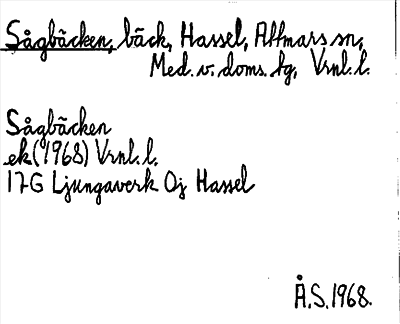 Sågbäcken, bäck, Hassel, Attmars sn,
Med. v. doms. tg, Vrnl. l.
Sågbäcken
ek (1968) Vrnl. l.
17G Ljungaverk 0j Hassel
Å.S. 1968.